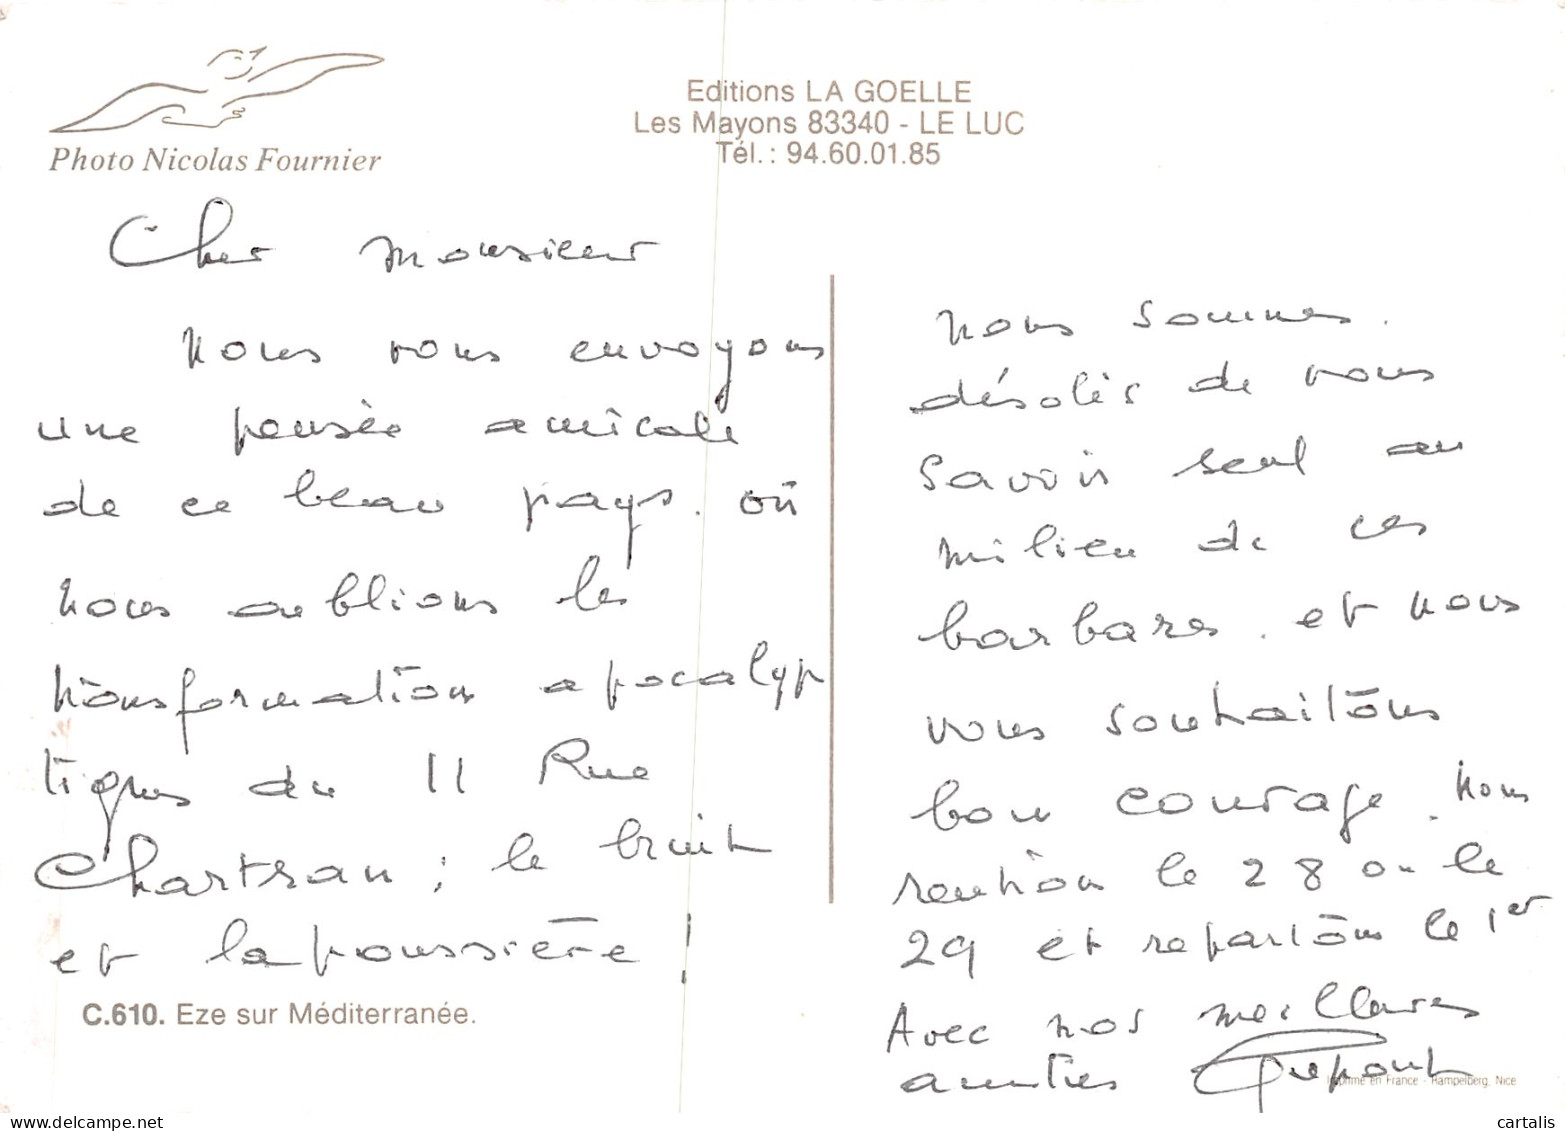 Photo Nicolas Fournier
Editions LA GOELLE
Les Mayons 83340 - LE LUC
Tél. : 94.60.01.85
Cher monsieur
nous vous envoyons
une pensée amicale
de ce beau pays. où
nous oublions les
transformation apocalyp
tiques du 11 Rue
Chartran ; le bruit
et la poussière !
C.610. Eze sur Méditerranée.
nous sommes.
désolés de vous
savoir seul au
milieu de ces
barbares. et nous
vous souhaitons
bon courage. nous
rentrons le 28 ou le
29 et repartons le 1er
Avec nos meilleures
amitiés
Imprimé en France - Rampelberg. Nice
cartalis
www.delcampe.net